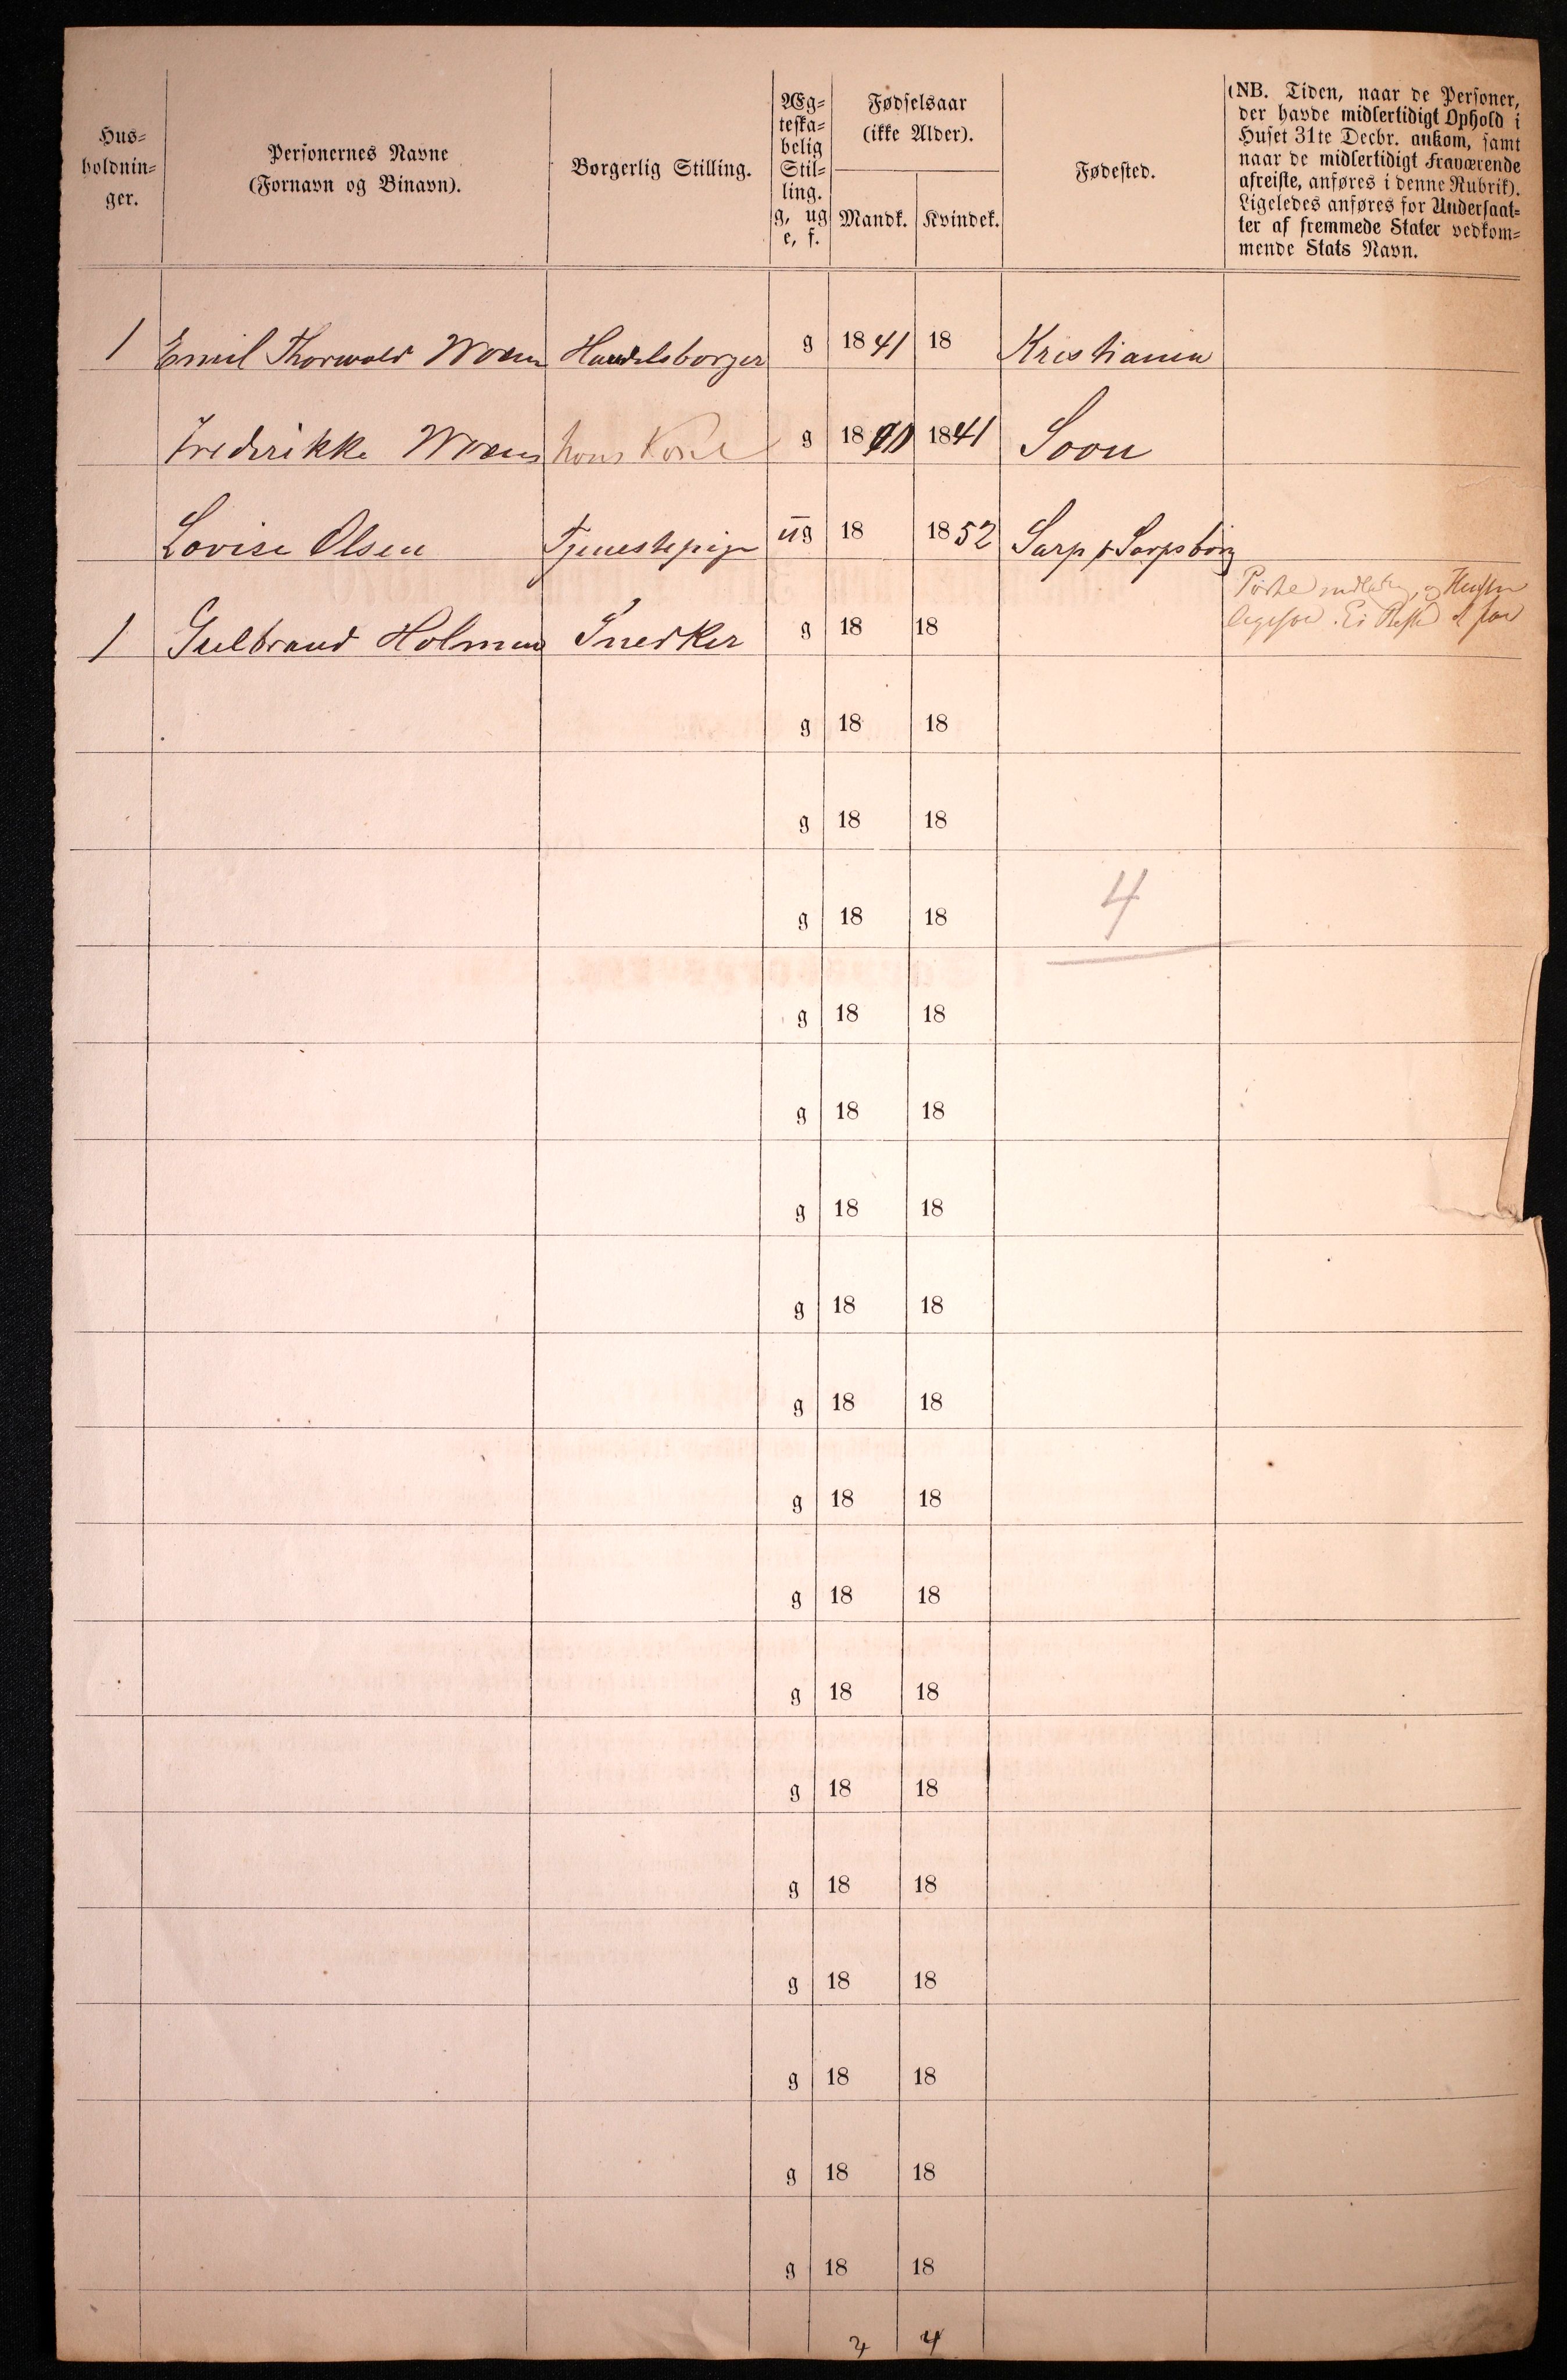 Hus-
holdnin-
ger.
Personernes Navne
(Fornavn og Binavn).
Borgerlig Stilling.
Æg-
teska-
belig
Stil-
ling.
g, ug
e, f.
Fødselsaar
(ikke Alder).
Mandk. Kvindek.
Fødested.
(NB. Tiden, naar de Personer,
der havde midlertidigt Ophold i
Huset 31te Decbr. ankom, samt
naar de midlertidigt Fraværende
afreiste, anføres i denne Rubrik).
Ligeledes anføres for Undersaat-
ter af fremmede Stater vedkom-
mende Stats Navn.
1 Emil Thorwald Handelsborger g 1841 18 Kristiania
Frederikke hans Kone g 18 1841 Soon
Lovise Olsen Tjenestepige ug 18 1852 Sarp p Sarpsborg
1 Gulbrand Holmen Snedker g 18 18
g 18 18
g 18 18
g 18 18 4
g 18 18
g 18 18
g 18 18
g 18 18
g 18 18
g 18 18
g 18 18
g 18 18
g 18 18
g 18 18
g 18 18
g 18 18
g 18 18
g 18 18
4